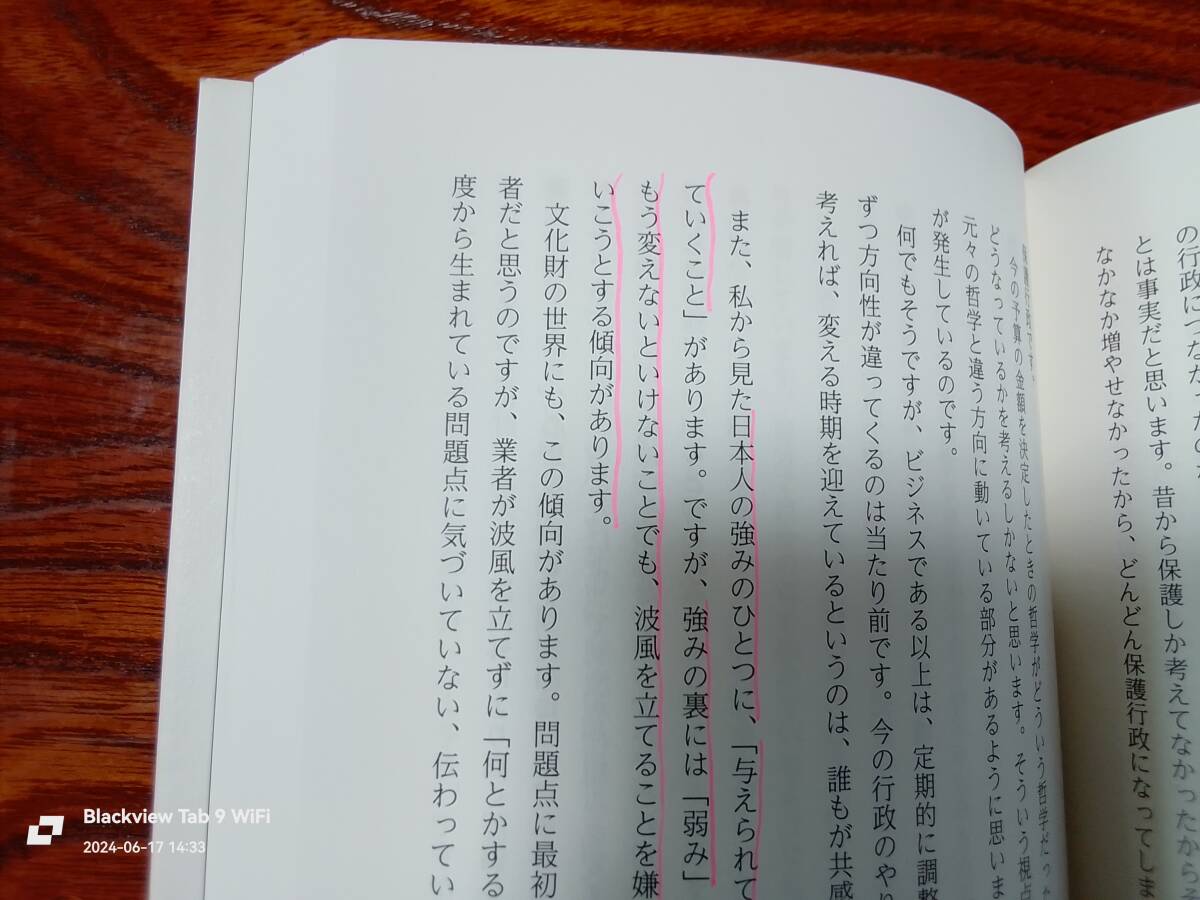 の行政につな
とは事実だと思います。昔から保護しか考えてなかったからそ
なかなか増やせなかったから、どんどん保護行政になってしま
今の予算の金額を決定したときの哲学がどういう哲学だった
どうなっているかを考えるしかないと思います。そういう視点
元々の哲学と違う方向に動いている部分があるように思いま
が発生しているのです。
何でもそうですが、ビジネスである以上は、定期的に調整
ずつ方向性が違ってくるのは当たり前です。今の行政のやり
考えれば、変える時期を迎えているというのは、誰もが共感
また、私から見た日本人の強みのひとつに、「与えられて
ていくこと」があります。ですが、強みの裏には「弱み」
もう変えないといけないことでも、波風を立てることを嫌
いこうとする傾向があります。
文化財の世界にも、この傾向があります。問題点に最初
者だと思うのですが、業者が波風を立てずに「何とかする
度から生まれている問題点に気づいていない、伝わってい
Blackview Tab 9 WiFi
2024-06-17 14:33